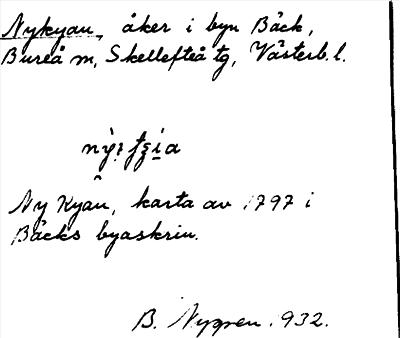 Nykyan, åker i byn Bäck,
Bureå m, Skellefteå tg, Västerb. l.
Ny Kyan, karta av 1797 i
Bäcks byaskrin.
B. Nygren 1932.